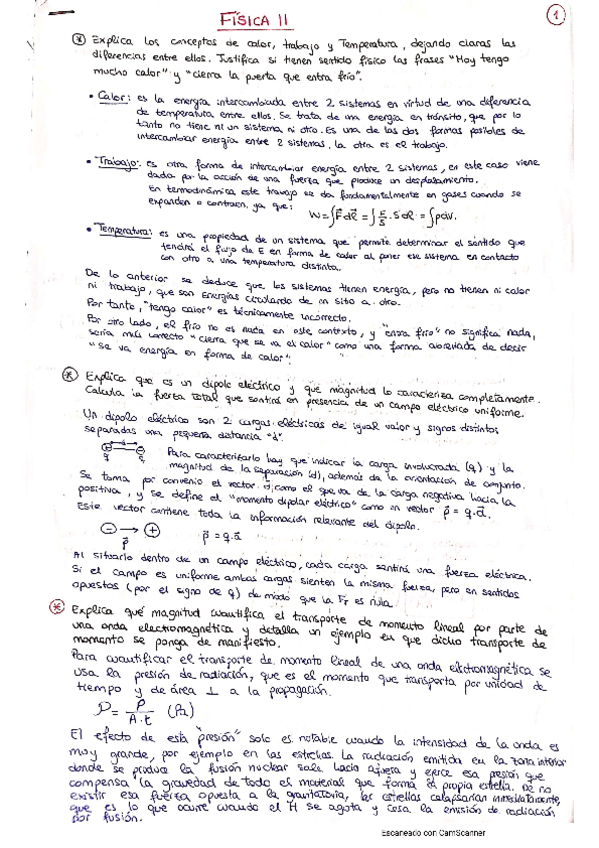 FÍSICA II
1
* Explica los conceptos de calor, trabajo y Temperatura, dejando claras las
diferencias entre ellos. Justifica si tienen sentido físico las frases "Hoy tengo
mucho calor" y "cierra la puerta que entra frío".
• Calor: es la energía intercambiada entre 2 sistemas en virtud de una diferencia
de temperatura entre ellos. Se trata de una energía en tránsito, que por lo
tanto no tiene ni un sistema ni otro. Es una de las dos formas posibles de
intercambiar energía entre 2 sistemas. La otra es el trabajo.
• Trabajo: es otra forma de intercambiar energía entre 2 sistemas, en este caso viene
dada por la acción de una fuerza que produce un desplazamiento.
En termodinámica este trabajo se da fundamentalmente en gases cuando se
expanden o contraen, ya que:
W = ∫F⃗dR⃗ = ∫F/S · S dR = ∫pdV.
• Temperatura: es una propiedad de un sistema que permite determinar el sentido que
tendrá el flujo de E en forma de calor al poner ese sistema en contacto
con otro a una temperatura distinta.
De lo anterior se deduce que los sistemas tienen energía, pero no tienen ni calor
ni trabajo, que son energías circulando de un sitio a otro.
Por tanto, "tengo calor" es técnicamente incorrecto.
Por otro lado, el frío no es nada en este contexto, y "entra frío" no significa nada,
sería más correcto "cierra que se va el calor" como una forma abreviada de decir
"se va energía en forma de calor".
* Explica que es un dipolo eléctrico y qué magnitud lo caracteriza completamente.
Calcula la fuerza total que sentirá en presencia de un campo eléctrico uniforme.
Un dipolo eléctrico son 2 cargas eléctricas de igual valor y signos distintos
separadas una pequeña distancia "d".
d
q q
Para caracterizarlo hay que indicar la carga involucrada (q) y la
magnitud de la separación (d), además de la orientación de conjunto.
Se toma por convenio el vector d⃗ como el que va de la carga negativa hacia la
positiva, y se define el "momento dipolar eléctrico" como un vector p⃗ = q·d⃗.
Este vector contiene toda la información relevante del dipolo.
⊖ → ⊕
p⃗ p⃗ = q·d⃗
Al situarlo dentro de un campo eléctrico, cada carga sentirá una fuerza eléctrica.
Si el campo es uniforme ambas cargas sienten la misma fuerza, pero en sentidos
opuestos (por el signo de q) de modo que la Fr es nula.
* Explica qué magnitud cuantifica el transporte de momento lineal por parte de
una onda electromagnética y detalla un ejemplo en que dicho transporte de
momento se ponga de manifiesto.
Para cuantificar el transporte de momento lineal de una onda electromagnética se
usa la presión de radiación, que es el momento que transporta por unidad de
tiempo y de área ⊥ a la propagación.
P = P/A·t (Pa)
El efecto de esta "presión" solo es notable cuando la intensidad de la onda es
muy grande, por ejemplo en las estrellas. La radiación emitida en la zona interior
donde se produce la fusión nuclear sale hacia afuera y ejerce esa presión que
compensa la gravedad de todo el material que forma la propia estrella. De no
existir esa fuerza opuesta a la gravitatoria, las estrellas colapsarían inmediatamente,
que es lo que ocurre cuando el H se agota y cesa la emisión de radiación
por fusión.
Escaneado con CamScanner